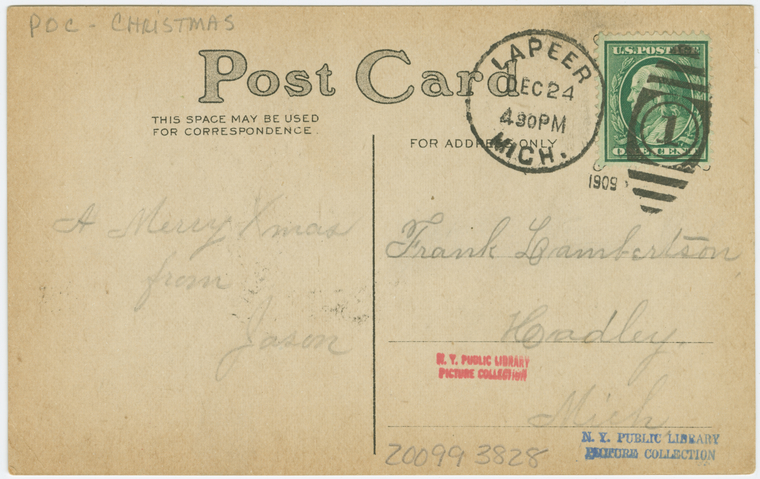 POC - CHRISTMAS
Post Card
THIS SPACE MAY BE USED
FOR CORRESPONDENCE.
FOR ADDRESS ONLY
LAPEER
DEC 24
430PM
MICH.
1909
U.S. POSTAGE
1
ONE CENT
A Merry Xmas
from
Jason
Frank Lambertson
Hadley,
Mich
N. Y. PUBLIC LIBRARY
PICTURE COLLECTION
N. Y. PUBLIC LIBRARY
PICTURE COLLECTION
20099 3828